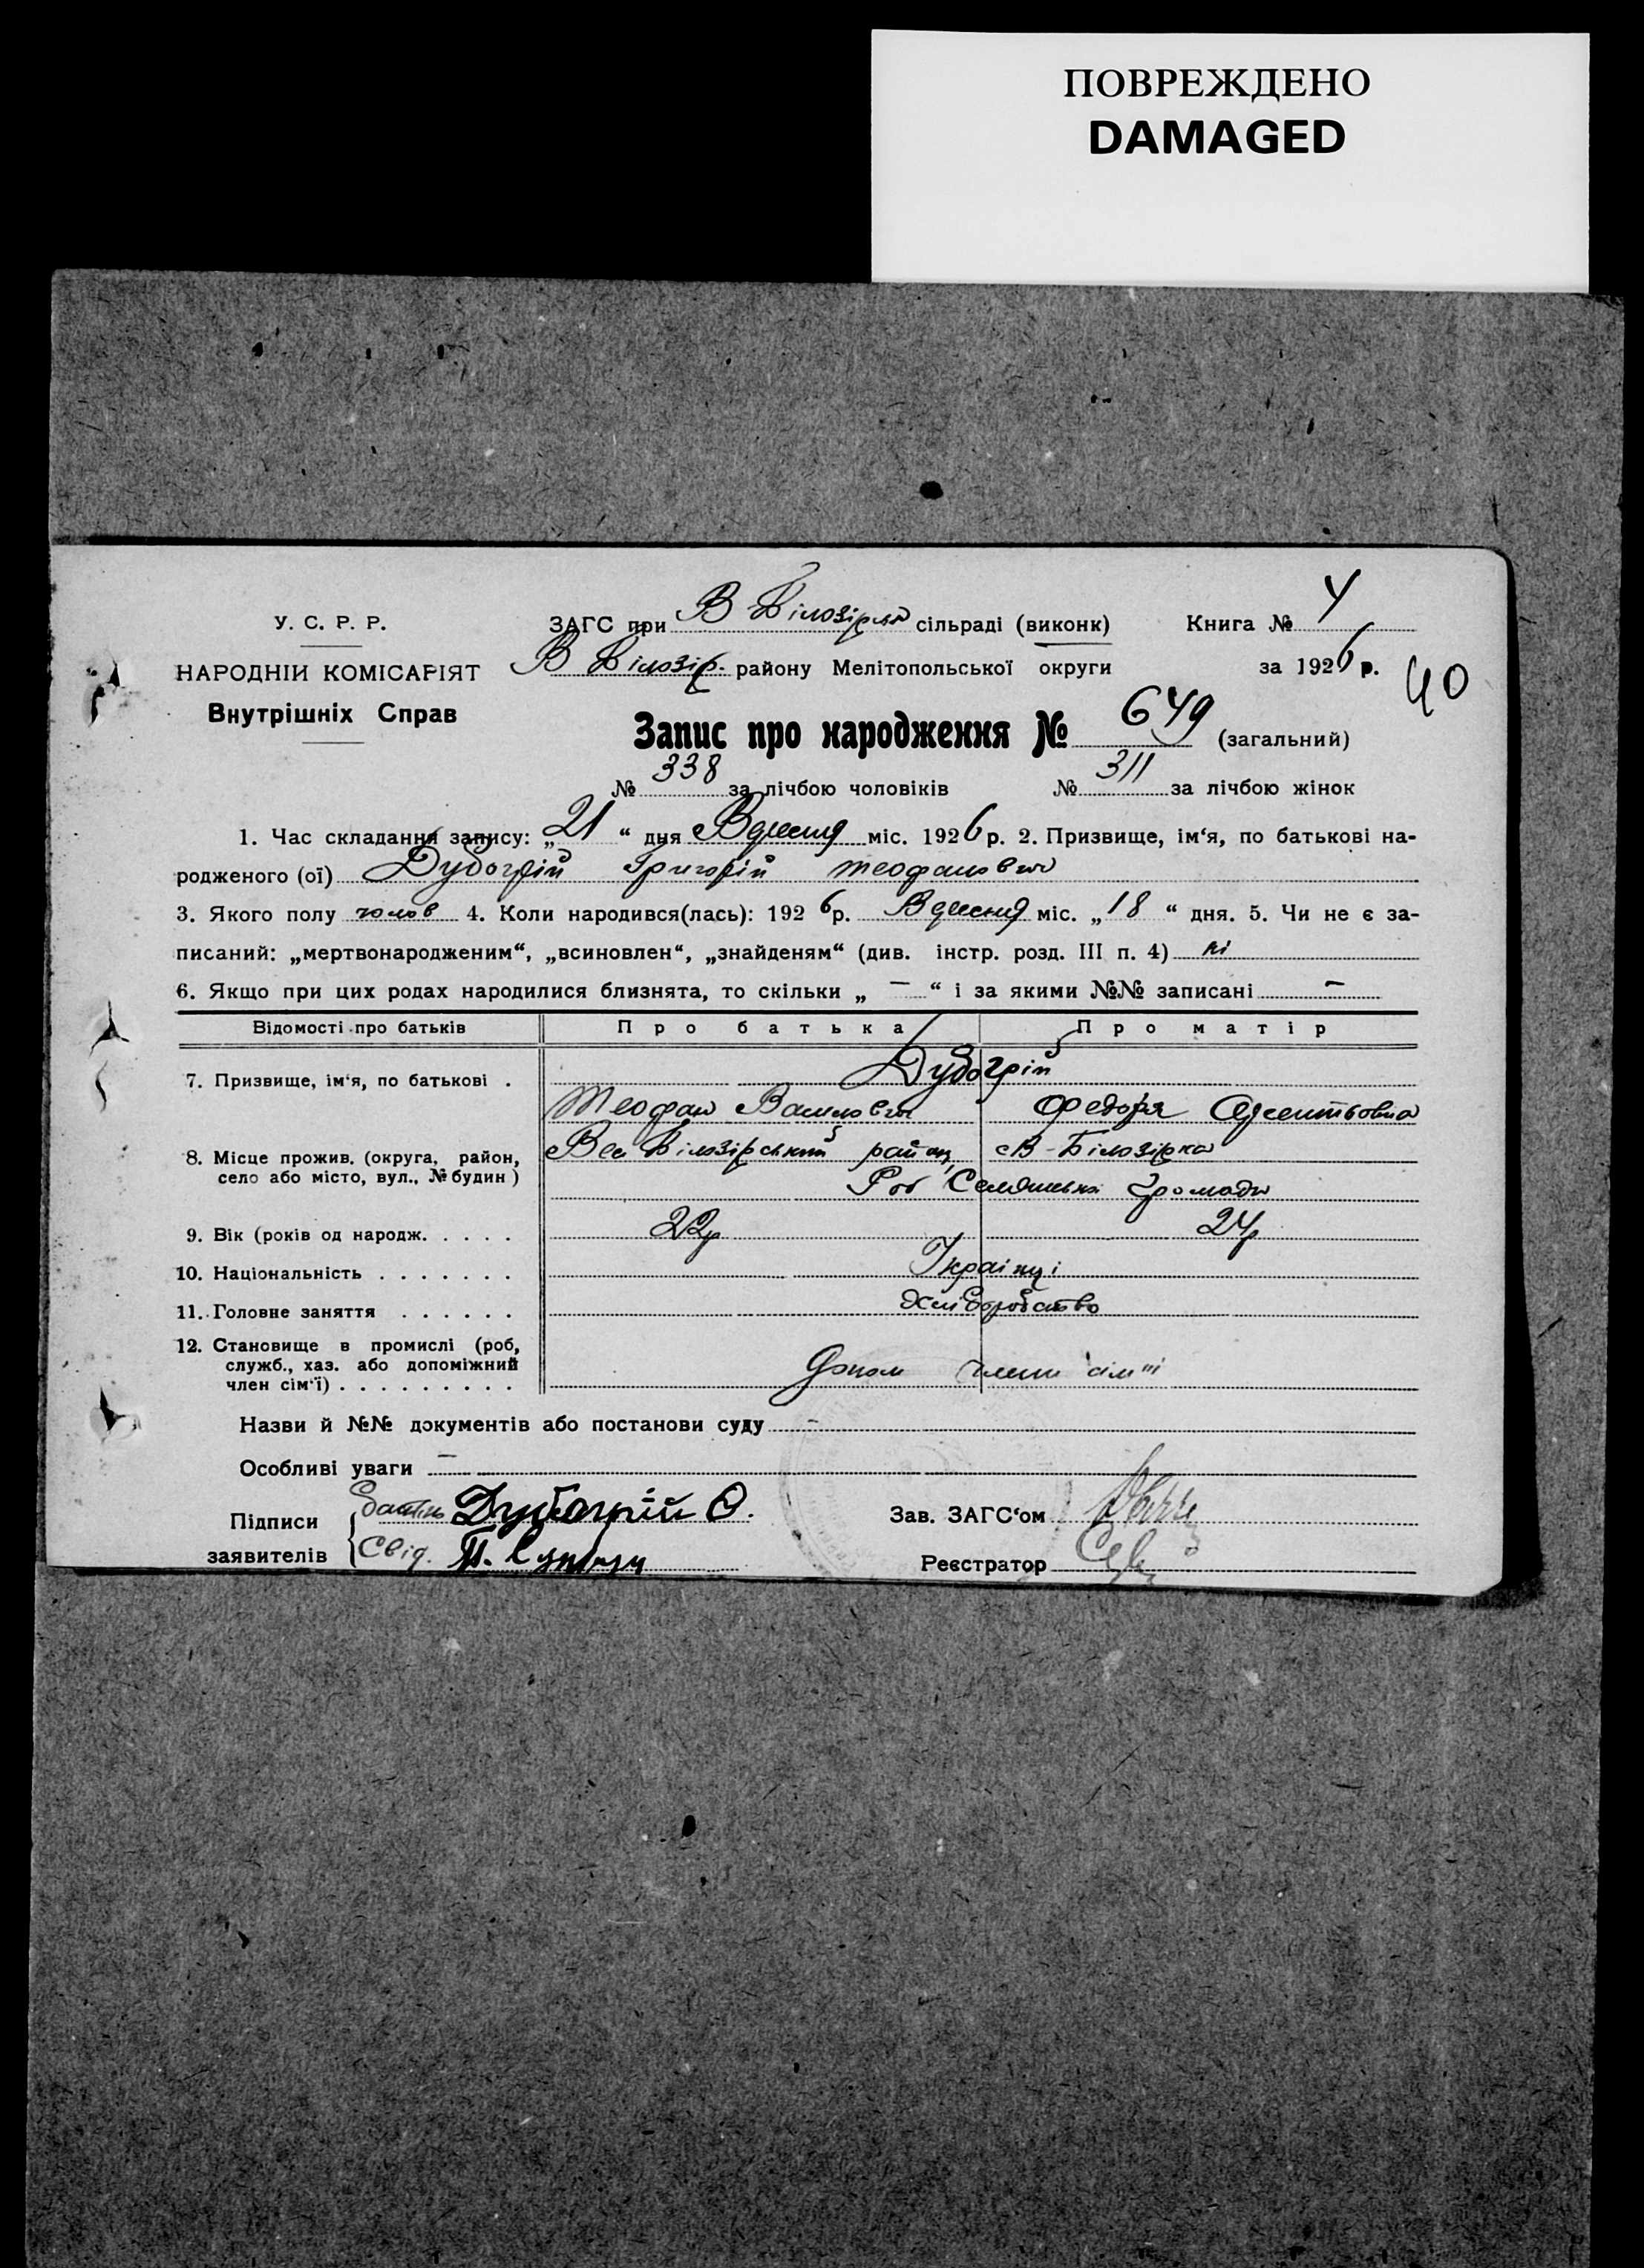 ПОВРЕЖДЕНО
DAMAGED
У. С. Р. Р.
НАРОДНІЙ КОМІСАРІЯТ
Внутрішніх Справ
ЗАГС при В Білозірка сільраді (виконк)
Книга № 4
В Білозір. району Мелітопольської округи
за 1926 р.
40
Запис про народження № 649 (загальний)
№ 338 за лічбою чоловіків № 311 за лічбою жінок
1. Час складання запису: „21“ дня Вересня міс. 1926 р. 2. Призвище, ім‘я, по батькові на-
родженого (ої) Дубогрій Григорій Теофанович
3. Якого полу чолов 4. Коли народився(лась): 1926 р. Вересня міс. „18“ дня. 5. Чи не є за-
писаний: „мертвонародженим“, „всиновлен“, „знайденям“ (див. інстр. розд. III п. 4) ні
6. Якщо при цих родах народилися близнята, то скільки „ — “ і за якими №№ записані —
Відомості про батьків Про батька Про матір
7. Призвище, ім‘я, по батькові . Дубогрій
Теофан Федоря
8. Місце прожив. (округа, район, Вел Білозірський район, В-Білозірка
село або місто, вул., № будин ) громади
9. Вік (років од народж. . . . . 22р 24р
10. Національність . . . . . . . Українці
11. Головне заняття . . . . . . Хліборобство
12. Становище в промислі (роб,
служб., хаз. або допоміжний
член сім‘ї) . . . . . . . . . допом члени сім'ї
Назви й №№ документів або постанови суду —
Особливі уваги —
Підписи батько Дубогрій Ѳ. Зав. ЗАГС‘ом
заявителів Свід. Реєстратор